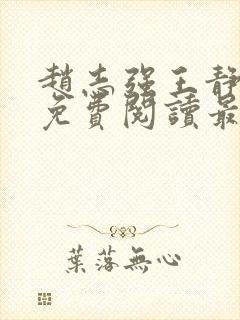 趙志强王靜
免費閱讀最
葉落無心